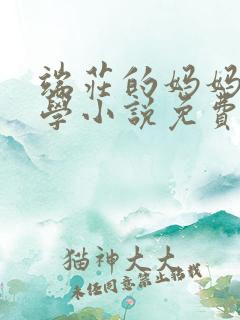 端莊的妈妈
學小説免費
猫神大大
未经同意禁止转载